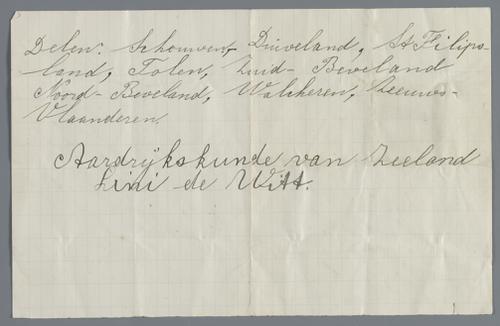 Delen: Schouwen, Duiveland, St Filips-
land, Tolen, Zuid- Beveland
Noord- Beveland, Walcheren, Zeeuws-
Vlaanderen.
Aardrijkskunde van Zeeland
Lini de Witt.